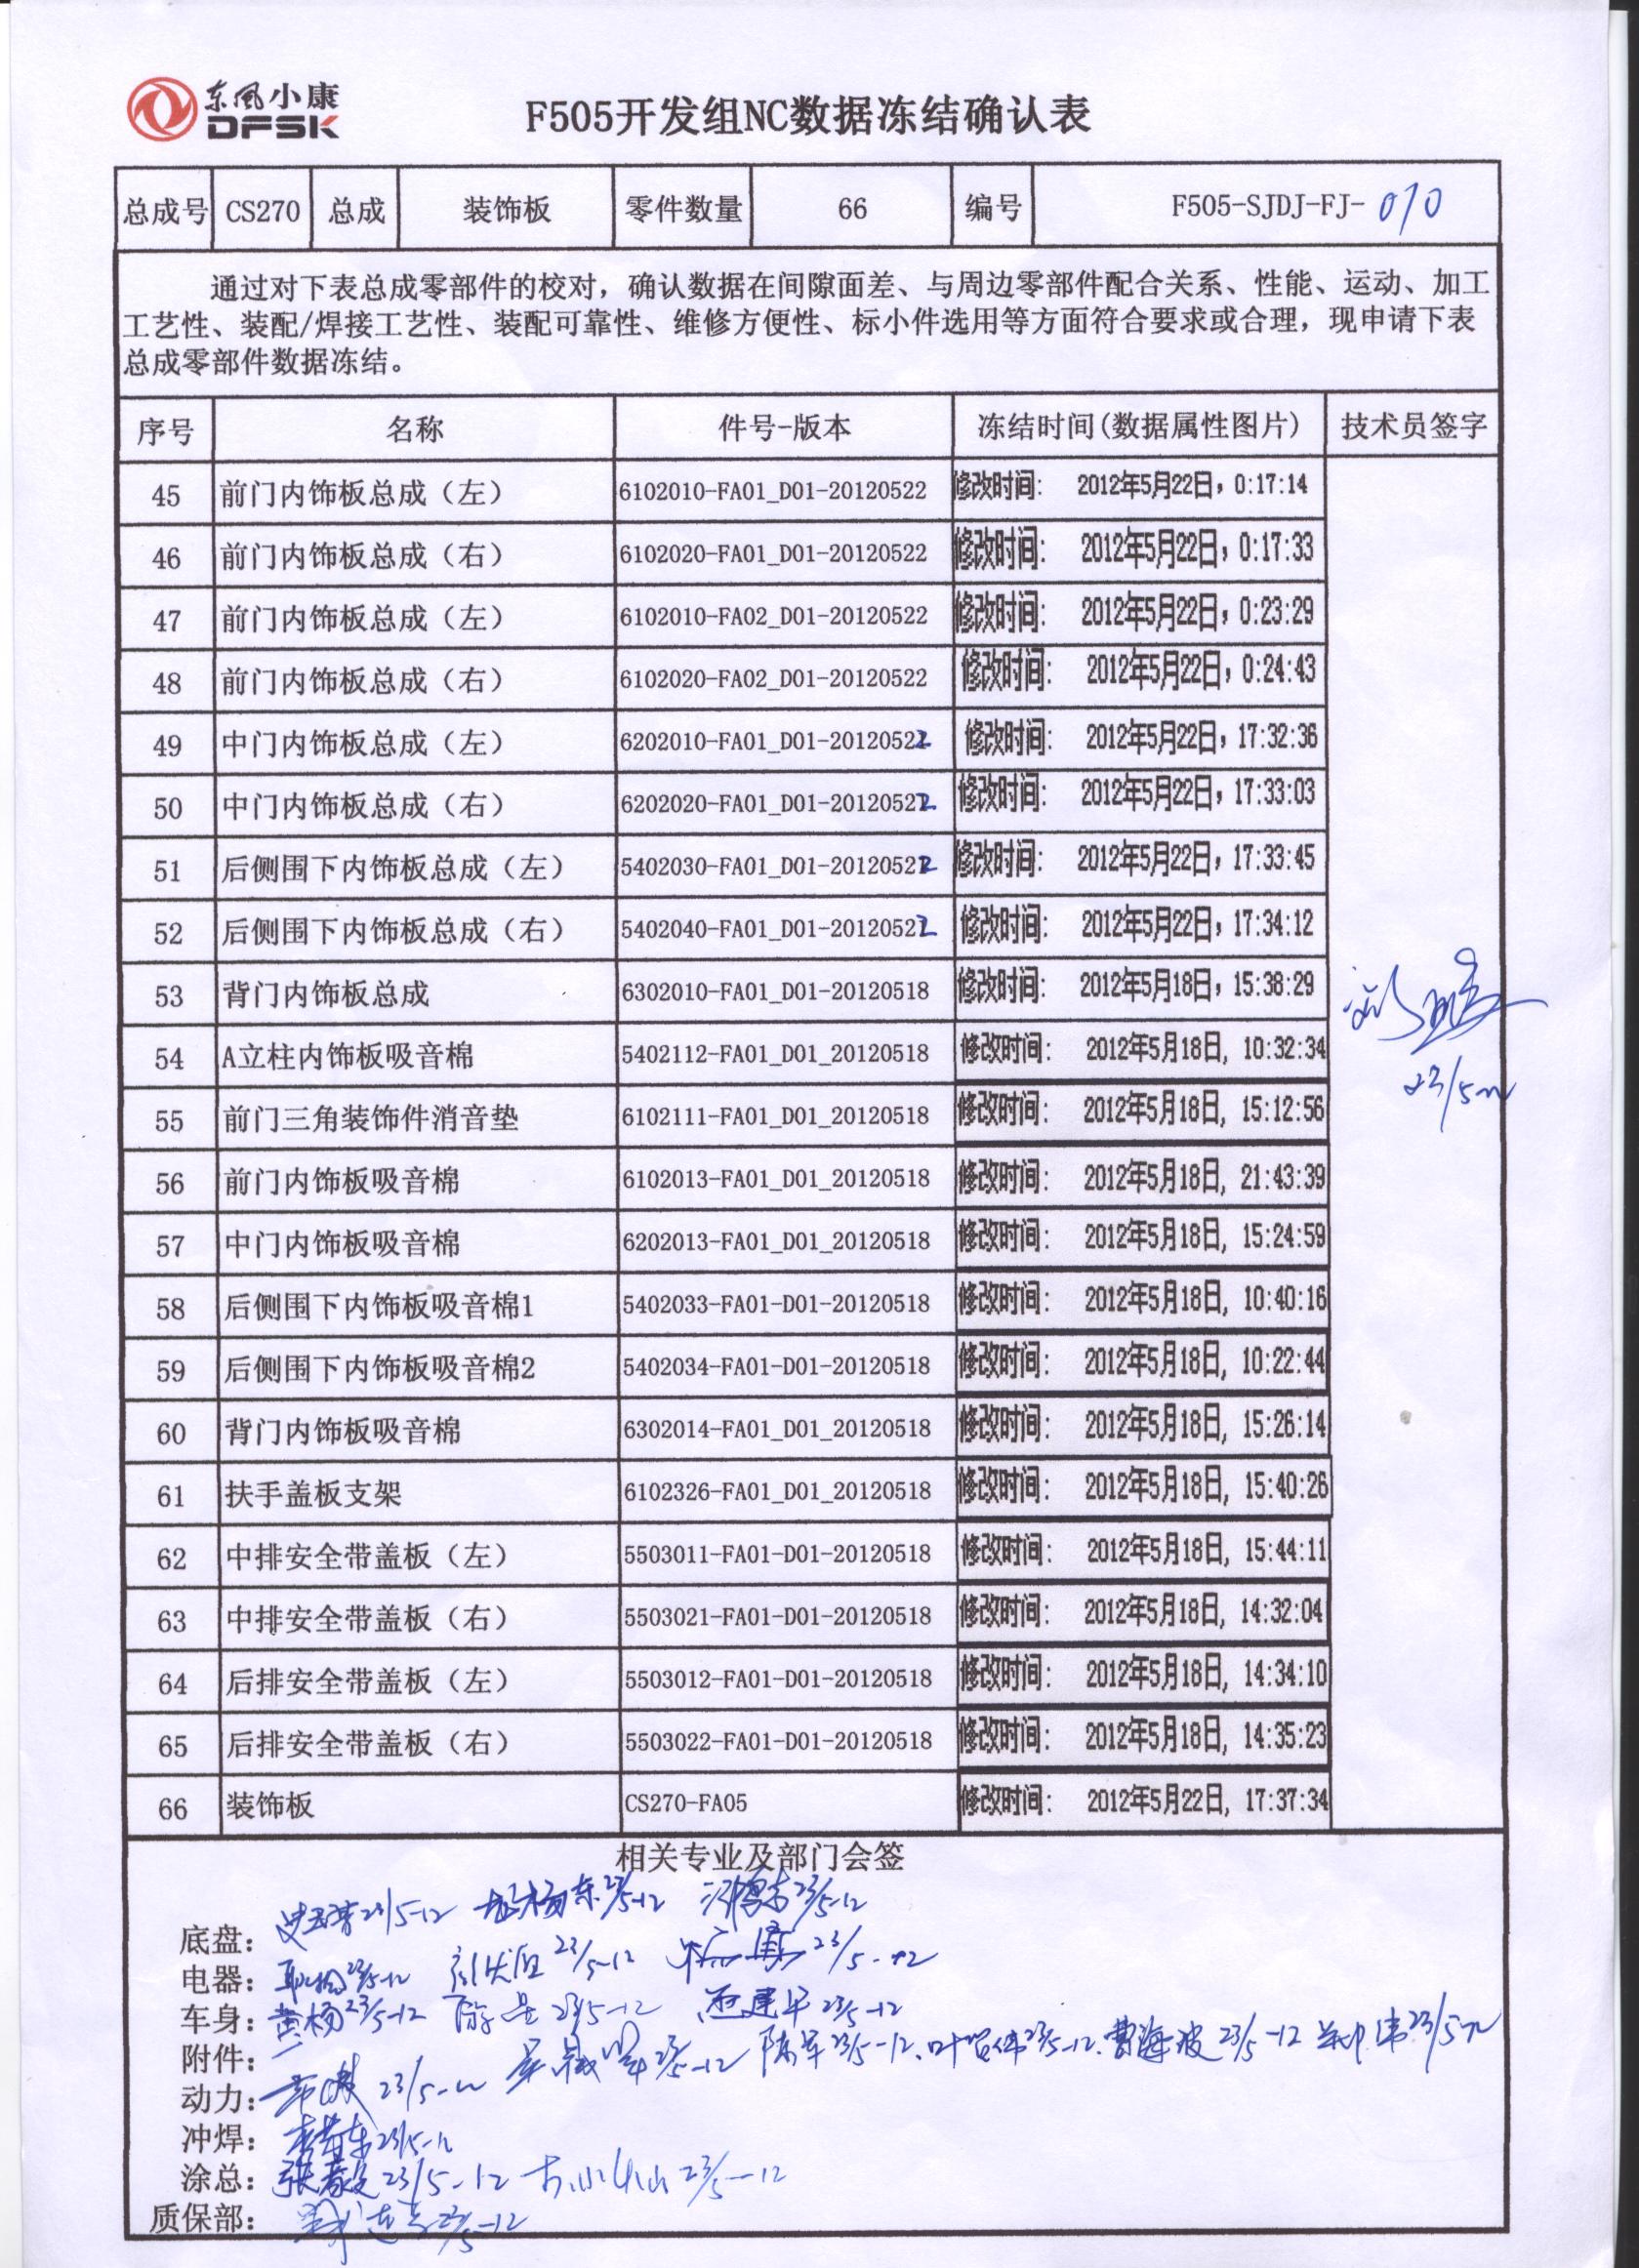 东风小康
DFSK
F505开发组NC数据冻结确认表
总成号 CS270 总成 装饰板 零件数量 66 编号 F505-SJDJ-FJ-010
通过对下表总成零部件的校对，确认数据在间隙面差、与周边零部件配合关系、性能、运动、加工
工艺性、装配/焊接工艺性、装配可靠性、维修方便性、标小件选用等方面符合要求或合理，现申请下表
总成零部件数据冻结。
序号 名称 件号-版本 冻结时间(数据属性图片) 技术员签字
45 前门内饰板总成（左） 6102010-FA01_D01-20120522 修改时间： 2012年5月22日，0:17:14
46 前门内饰板总成（右） 6102020-FA01_D01-20120522 修改时间： 2012年5月22日，0:17:33
47 前门内饰板总成（左） 6102010-FA02_D01-20120522 修改时间： 2012年5月22日，0:23:29
48 前门内饰板总成（右） 6102020-FA02_D01-20120522 修改时间： 2012年5月22日，0:24:43
49 中门内饰板总成（左） 6202010-FA01_D01-20120522 修改时间： 2012年5月22日，17:32:36
50 中门内饰板总成（右） 6202020-FA01_D01-20120522 修改时间： 2012年5月22日，17:33:03
51 后侧围下内饰板总成（左） 5402030-FA01_D01-20120522 修改时间： 2012年5月22日，17:33:45
52 后侧围下内饰板总成（右） 5402040-FA01_D01-20120522 修改时间： 2012年5月22日，17:34:12
53 背门内饰板总成 6302010-FA01_D01-20120518 修改时间： 2012年5月18日，15:38:29
54 A立柱内饰板吸音棉 5402112-FA01_D01-20120518 修改时间： 2012年5月18日, 10:32:34
55 前门三角装饰件消音垫 6102111-FA01_D01-20120518 修改时间： 2012年5月18日, 15:12:56
56 前门内饰板吸音棉 6102013-FA01_D01_20120518 修改时间： 2012年5月18日, 21:43:39
57 中门内饰板吸音棉 6202013-FA01_D01_20120518 修改时间： 2012年5月18日, 15:24:59
58 后侧围下内饰板吸音棉1 5402033-FA01-D01-20120518 修改时间： 2012年5月18日, 10:40:16
59 后侧围下内饰板吸音棉2 5402034-FA01-D01-20120518 修改时间： 2012年5月18日, 10:22:44
60 背门内饰板吸音棉 6302014-FA01_D01_20120518 修改时间： 2012年5月18日, 15:26:14
61 扶手盖板支架 6102326-FA01_D01_20120518 修改时间： 2012年5月18日, 15:40:26
62 中排安全带盖板（左） 5503011-FA01-D01-20120518 修改时间： 2012年5月18日, 15:44:11
63 中排安全带盖板（右） 5503021-FA01-D01-20120518 修改时间： 2012年5月18日, 14:32:04
64 后排安全带盖板（左） 5503012-FA01-D01-20120518 修改时间： 2012年5月18日, 14:34:10
65 后排安全带盖板（右） 5503022-FA01-D01-20120518 修改时间： 2012年5月18日, 14:35:23
66 装饰板 CS270-FA05 修改时间： 2012年5月22日, 17:37:34
23/5-12
相关专业及部门会签
底盘： 23/5-12 23/5-12 23/5-12
电器： 23/5-12 23/5-12 23/5-12
车身： 黄杨 23/5-12 23/5-12 23/5-12
附件： 23/5-12 陈军 23/5-12 23/5-12 曹海波 23/5-12 23/5-12
动力： 23/5-12
冲焊： 23/5-12
涂总： 23/5-12 23/5-12
质保部： 23/5-12